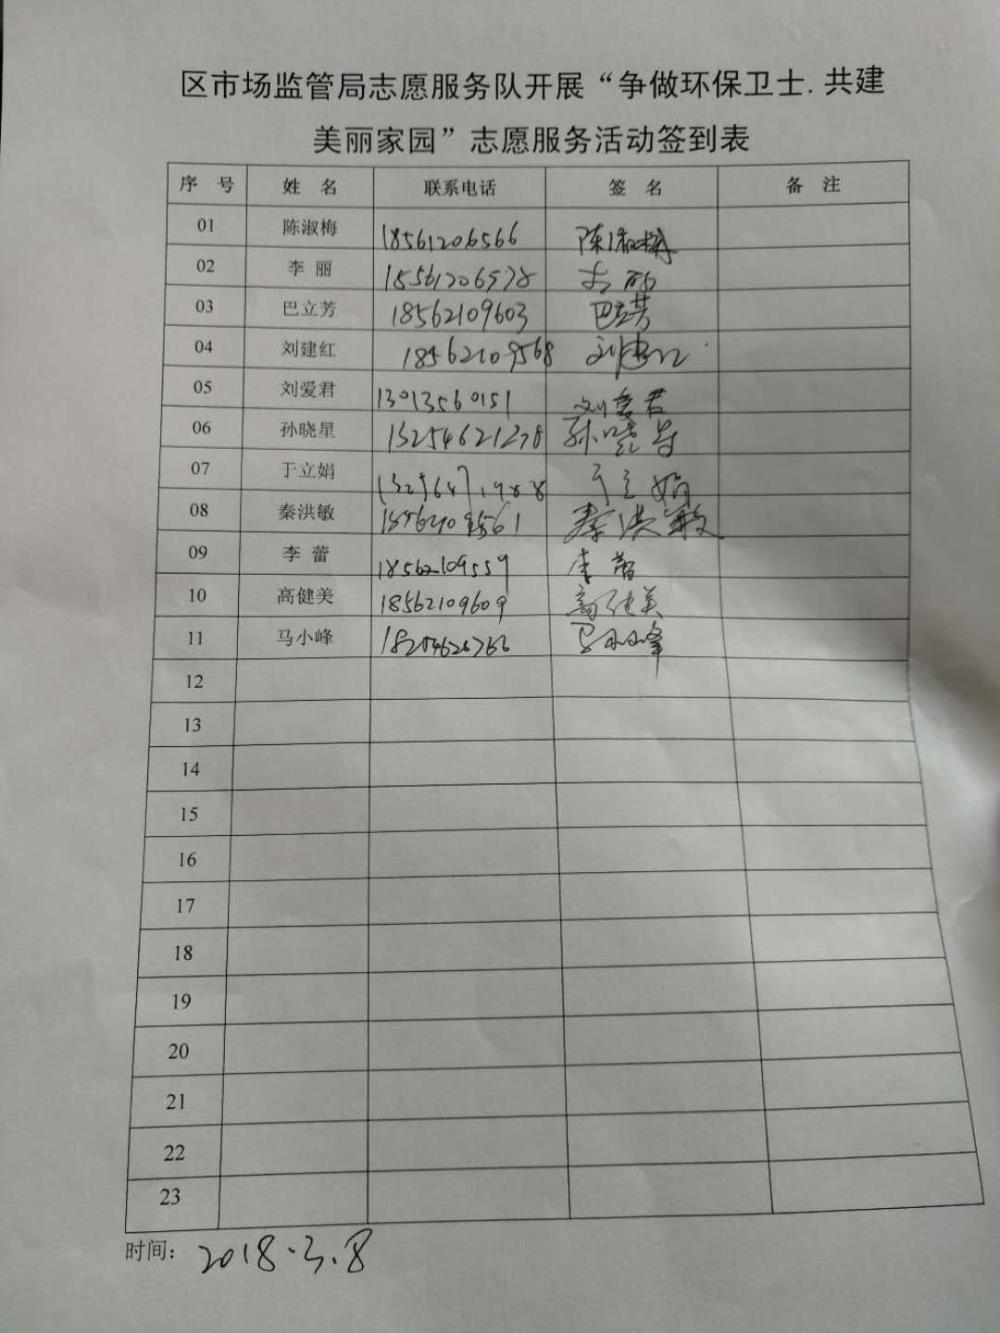 区市场监管局志愿服务队开展“争做环保卫士.共建
美丽家园”志愿服务活动签到表
序 号 姓 名 联系电话 签 名 备 注
01 陈淑梅 18561206566 陈淑梅
02 李 丽 18561206978 李丽
03 巴立芳 18562109603 巴立芳
04 刘建红 18562109568 刘建红
05 刘爱君 13013560151 刘爱君
06 孙晓星 15254621278 孙晓星
07 于立娟 于立娟
08 秦洪敏 秦洪敏
09 李 蕾 18562109559 李蕾
10 高健美 18562109609 高健美
11 马小峰 马小峰
12
13
14
15
16
17
18
19
20
21
22
23
时间: 2018.3.8